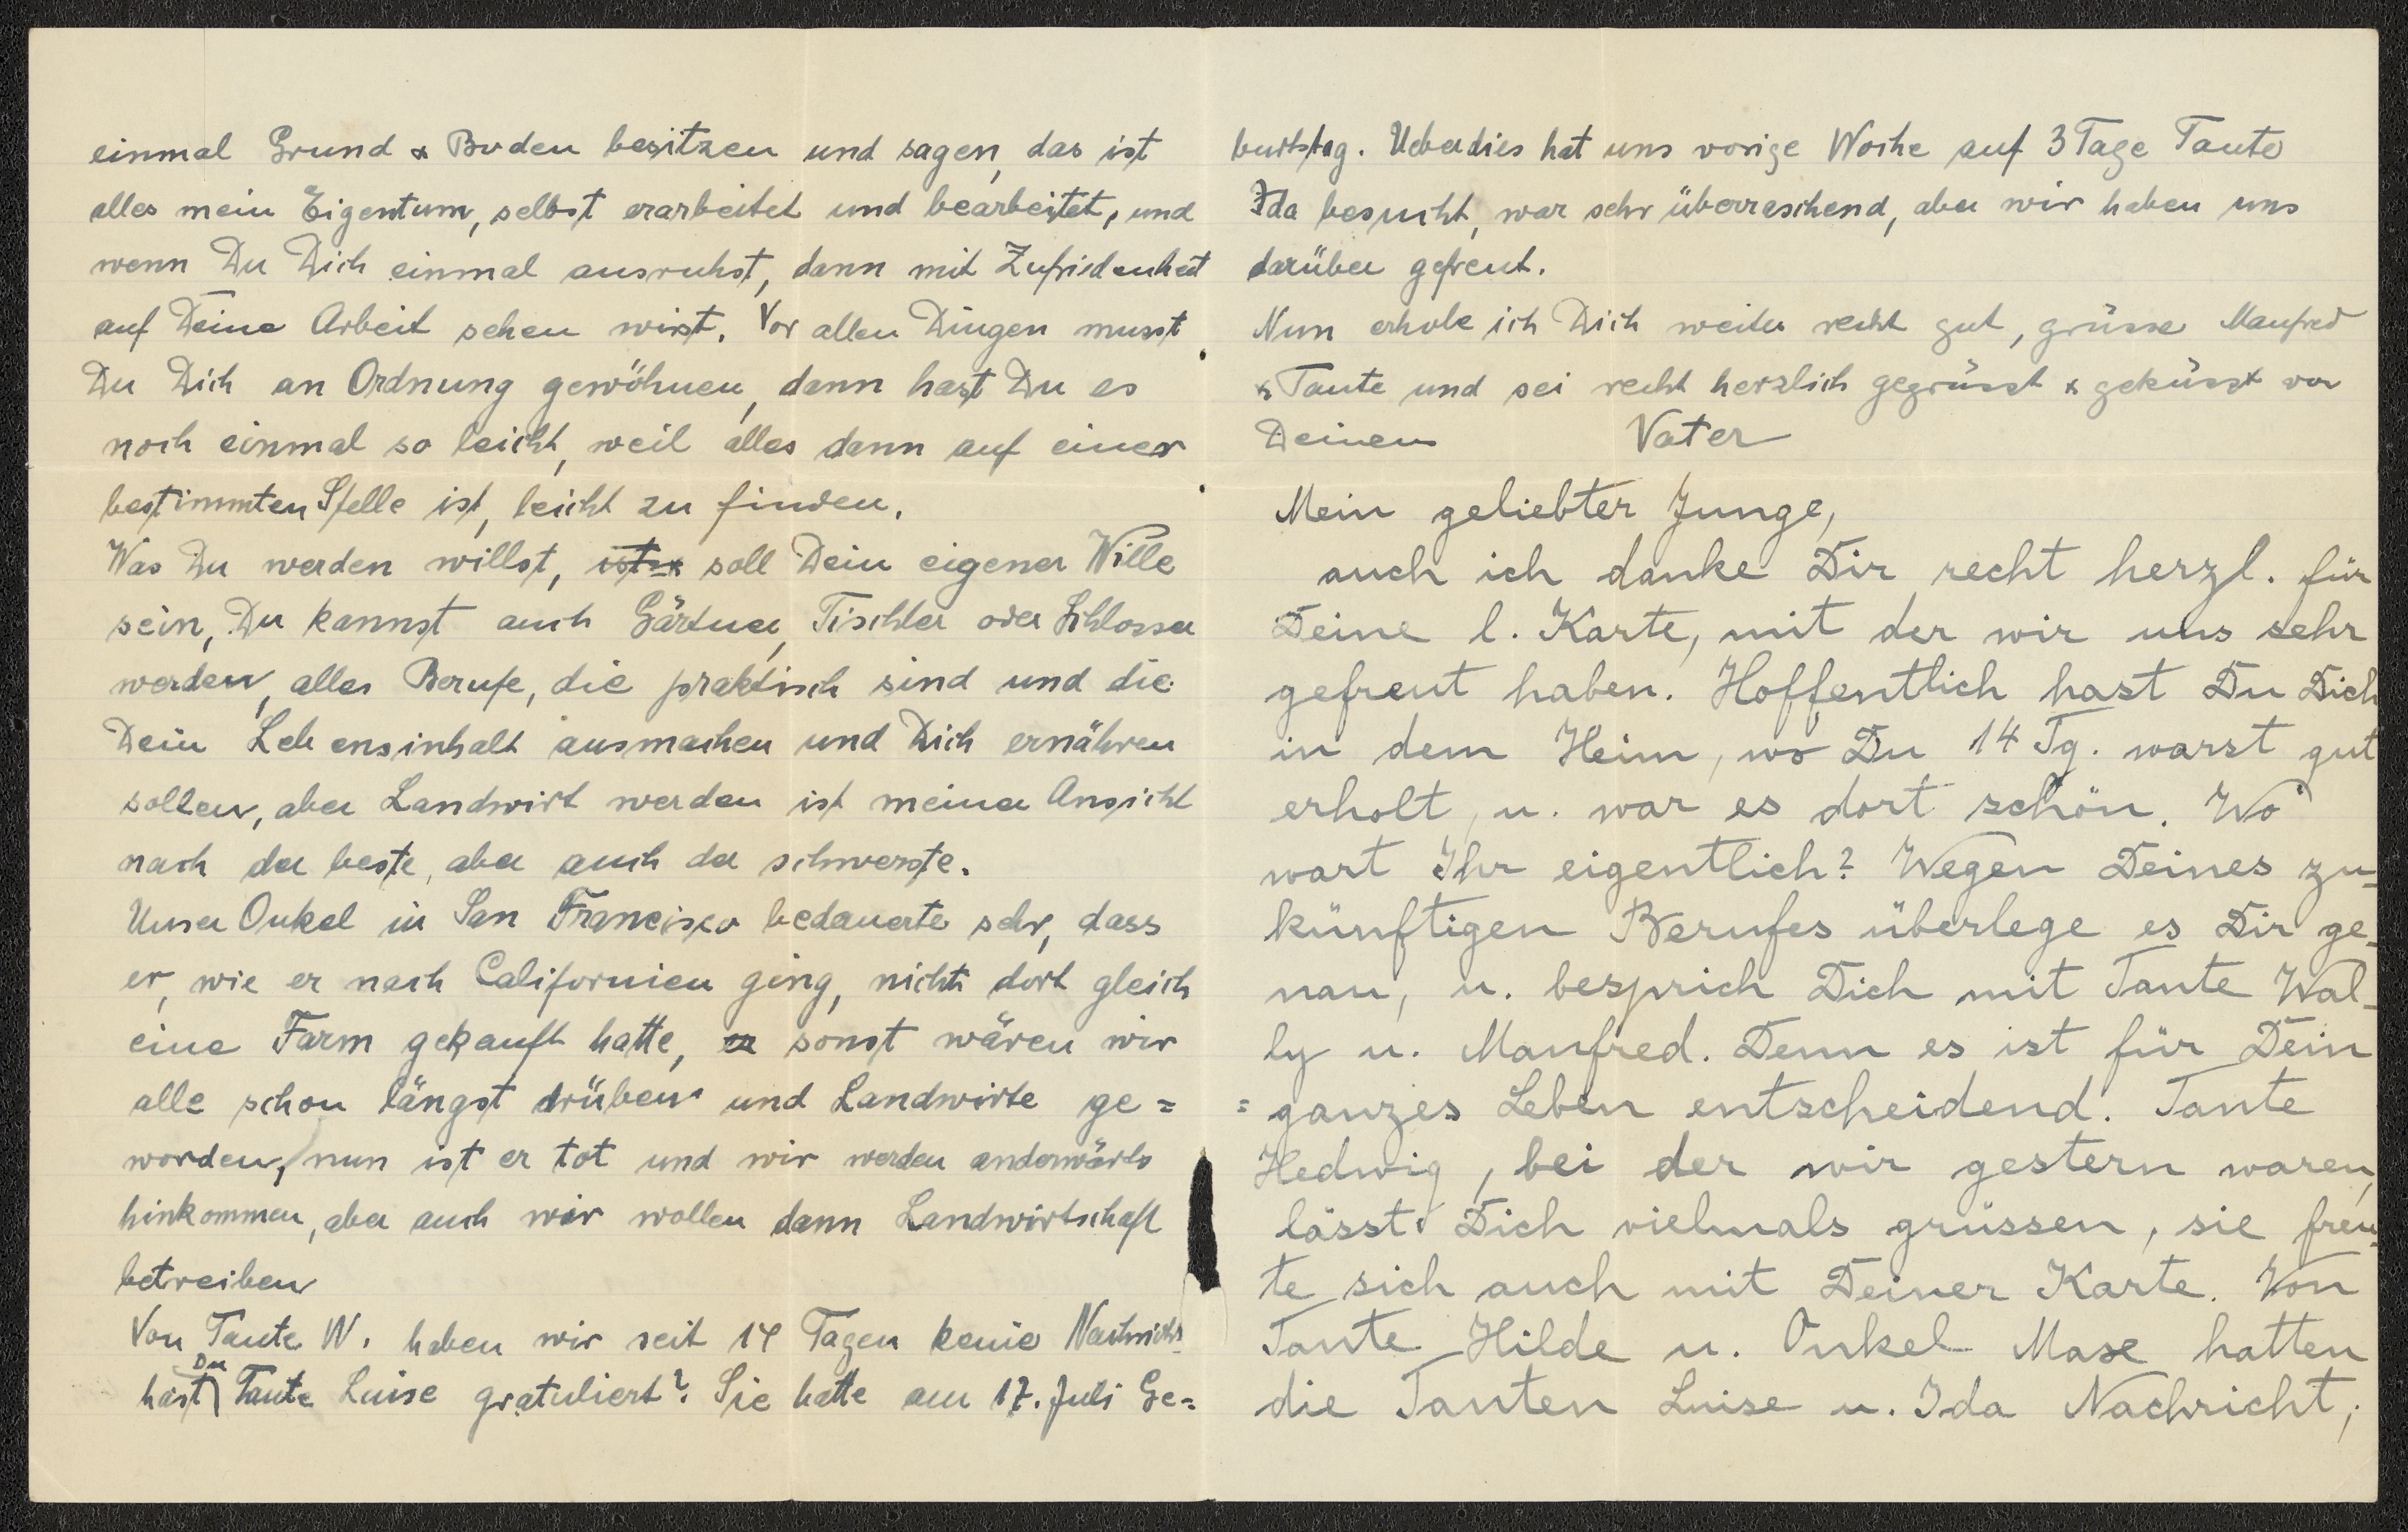 einmal Grund & Boden besitzen und sagen, das ist
alles mein Eigentum, selbst erarbeitet und bearbeitet, und
wenn Du Dich einmal ausruhst, dann mit Zufriedenheit
auf Deine Arbeit sehen wirst. Vor allen Dingen musst
Du Dich an Ordnung gewöhnen, dann hast Du es
noch einmal so leicht, weil alles dann auf einer
bestimmten Stelle ist, leicht zu finden.
Was Du werden willst, ist soll Dein eigener Wille
sein, Du kannst auch Gärtner, Tischler oder Schlosser
werden, alles Berufe, die praktisch sind und die
Dein Lebensinhalt ausmachen und Dich ernähren
sollen, aber Landwirt werden ist meiner Ansicht
nach der beste, aber auch der schwerste.
Unser Onkel in San Francisco bedauerte sehr, dass
er, wie er nach Californien ging, nicht dort gleich
eine Farm gekauft hatte, er sonst wären wir
alle schon längst drüben und Landwirte ge=
worden, nun ist er tot und wir werden anderwärts
hinkommen, aber auch wir wollen dann Landwirtschaft
betreiben
Von Tante W. haben wir seit 14 Tagen keine Nachricht.
hast Du Tante Luise gratuliert? Sie hatte am 17. Juli Ge=
burtstag. Ueberdies hat uns vorige Woche auf 3 Tage Tante
Ida besucht, war sehr überraschend, aber wir haben uns
darüber gefreut.
Nun erhole ich Dich weiter recht gut, grüsse Manfred
& Tante und sei recht herzlich gegrüsst & geküsst von
Deinem Vater
Mein geliebter Junge,
auch ich danke Dir recht herzl. für
Deine l. Karte, mit der wir uns sehr
gefreut haben. Hoffentlich hast Du Dich
in dem Heim, wo Du 14 Tg. warst gut
erholt, u. war es dort schön. Wo
wart Ihr eigentlich? Wegen Deines zu-
künftigen Berufes überlege es Dir ge-
nau, u. besprich Dich mit Tante Wal-
ly u. Manfred. Denn es ist für Dein
= ganzes Leben entscheidend. Tante
Hedwig, bei der wir gestern waren,
lässt Dich vielmals grüssen, sie freu-
te sich auch mit Deiner Karte. Von
Tante Hilde u. Onkel Maxe hatten
die Tanten Luise u. Ida Nachricht,